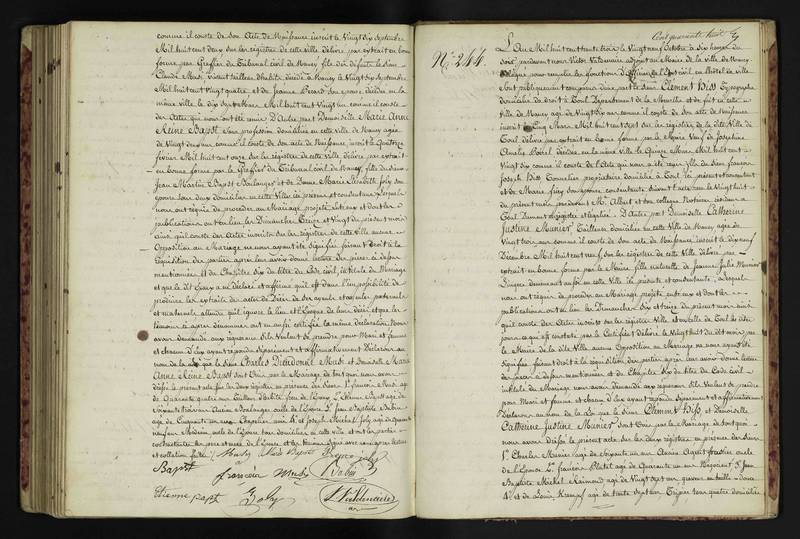 comme il conste de son Acte de Naissance inscrit le Vingt Six Septembre
Mil huit cent deux sur les registres de cette ville délivré par extrait en bonne
forme par le Greffier du Tribunal civil de Nancy fils de défunts le Sieur
Claude Musy, vivant tailleur d'habits décédé à Nancy le Vingt Six Septembre
Mil huit cent Vingt quatre, et de Jeanne son épouse décédée en la
même ville le dix sept Mars Mil huit cent Vingt un comme il conste
des Actes qui nous ont été remis D'Autre part Demoiselle Marie Anne
Reine Bapst Sans profession domiciliée en cette ville de Nancy agée
de Vingt deux ans comme il conste de son acte de Naissance, inscrit le Quatorze
février Mil huit cent onze sur les registres de cette ville délivré par extrait
en bonne forme par le Greffier du Tribunal civil de Nancy, fille du Sieur
Jean Martin Bapst Boulanger et de Dame Marie Elisabeth Joly son
épouse tous deux domiciliés en cette Ville ici présents et consentants Lesquels
nous ont requis de procéder au Mariage projeté entre eux et dont les
publications ont eu lieu les Dimanches Treize et Vingt du présent mois
ainsi qu'il conste des Actes inscrits sur les registres de cette ville aucune
Opposition au Mariage ne nous ayant été signifiée faisant droit à la
réquisition des parties après leur avoir donné lecture des pièces ci dessus
mentionnées et du Chapitre Six du titre du Code civil, intitulé du Mariage
et que le dit époux a déclaré et affirmé qu'il est dans l'impossibilité de
produire les extraits des actes de Décès de ses ayeuls et ayeules paternels
et maternels attendu qu'il ignore le lieu et l'époque de leur décès et que les
témoins ci après dénommés ont aussi certifié la même déclaration Nous
avons demandé aux requérans s'ils Veulent se prendre pour Mari et femme
et chacun d'eux ayant répondu séparément et affirmativement Déclarons au
nom de la Loi que le Sieur Charles Dieudonné Musy et Demoiselle Marie
Anne Reine Bapst sont Unis par le Mariage de tout quoi nous avons
dressé le présent acte sur les deux registres en présence des Sieurs 1° francois Musy agé
de Quarante quatre ans Tailleur d'habits frère de l'époux 2° Etienne Bapst agé de
Soixante ans Boulanger oncle de l'épouse 3° Jean Baptiste
de Cinquante un ans Chapelier ami 4° et Joseph Nicolas Joly agé de Quarante
neuf ans Médecin oncle de l'épouse tous domiciliés en cette ville et ont les parties
contractantes les père et mère de l'épouse et les témoins signé avec nous après lecture
et collation faite
Bapst
françois Musy
Etienne Bapst
Joly
Cent quarante huit
N° 244.
L'An Mil huit cent trente trois le Vingt neuf Octobre à Six heures du
soir pardevant nous Victor adjoint au Maire de la Ville de Nancy
délégué pour remplir les fonctions d'Officier de l'Etat civil en l'hôtel de ville
Sont publiquement comparus d'une part le Sieur Clément Hiss Typographe
domicilié de droit à Toul Département de la Meurthe et de fait en cette
Ville de Nancy agé de Vingt Six ans comme il conste de son acte de Naissance
inscrit le Cinq Mars Mil huit cent Sept sur les registres de la dite Ville de
Toul délivré par extrait en bonne forme par le Maire Veuf de Joséphine
Amélie décédée en la même ville le Quinze Mars Mil huit cent
Vingt dix comme il conste de l'Acte qui nous a été remis fils du Sieur francois
Joseph Hiss propriétaire domicilié à Toul ici présent et consentant
et de Marie son épouse consentante suivant l'acte reçu le Vingt huit
du présent mois pardevant Me Albert et son collègue Notaires résidans à
Toul Dûment enregistré et légalisé D'Autre part Demoiselle Catherine
Justine Munier Tailleuse domiciliée en cette Ville de Nancy agée de
Vingt trois ans comme il conste de son acte de Naissance inscrit le dix neuf
Décembre Mil huit cent neuf sur les registres de cette Ville délivré par
extrait en bonne forme par le Maire fille naturelle de Jeanne Julie Munier
Lingère demeurant aussi en cette Ville ici présente et consentante, Lesquels
nous ont requis de procéder au Mariage projeté entre eux et dont les
publications ont eu lieu les Dimanches Six et treize du présent mois ainsi
qu'il conste des Actes inscrits sur les registres de cette Ville et en celle de Toul les dits
jours ce qui est constaté par le Certificat délivré le Vingt huit du dit mois par
le Maire de la dite Ville aucune Opposition au Mariage ne nous ayant été
signifiée, faisant droit à la réquisition des parties après leur avoir donné lecture
des pièces ci dessus mentionnées et du Chapitre Six du titre du Code civil
intitulé du Mariage nous avons demandé aux requérans s'ils Veulent se prendre
pour Mari et femme et chacun d'eux ayant répondu séparément et affirmativement
Déclarons au nom de la Loi que le Sieur Clément Hiss et Demoiselle
Catherine Justine Munier Sont Unis par le Mariage de tout quoi
nous avons dressé le présent acte sur les deux registres en présence des Sieurs
1° Charles Munier agé de Cinquante un ans oncle
de l'Epouse 2° francois agé de Quarante un ans Négociant 3° Jean
Baptiste Michel Raimond agé de Vingt sept ans graveur en taille douce
4° et de Louis agé de trente sept ans tous quatre domiciliés